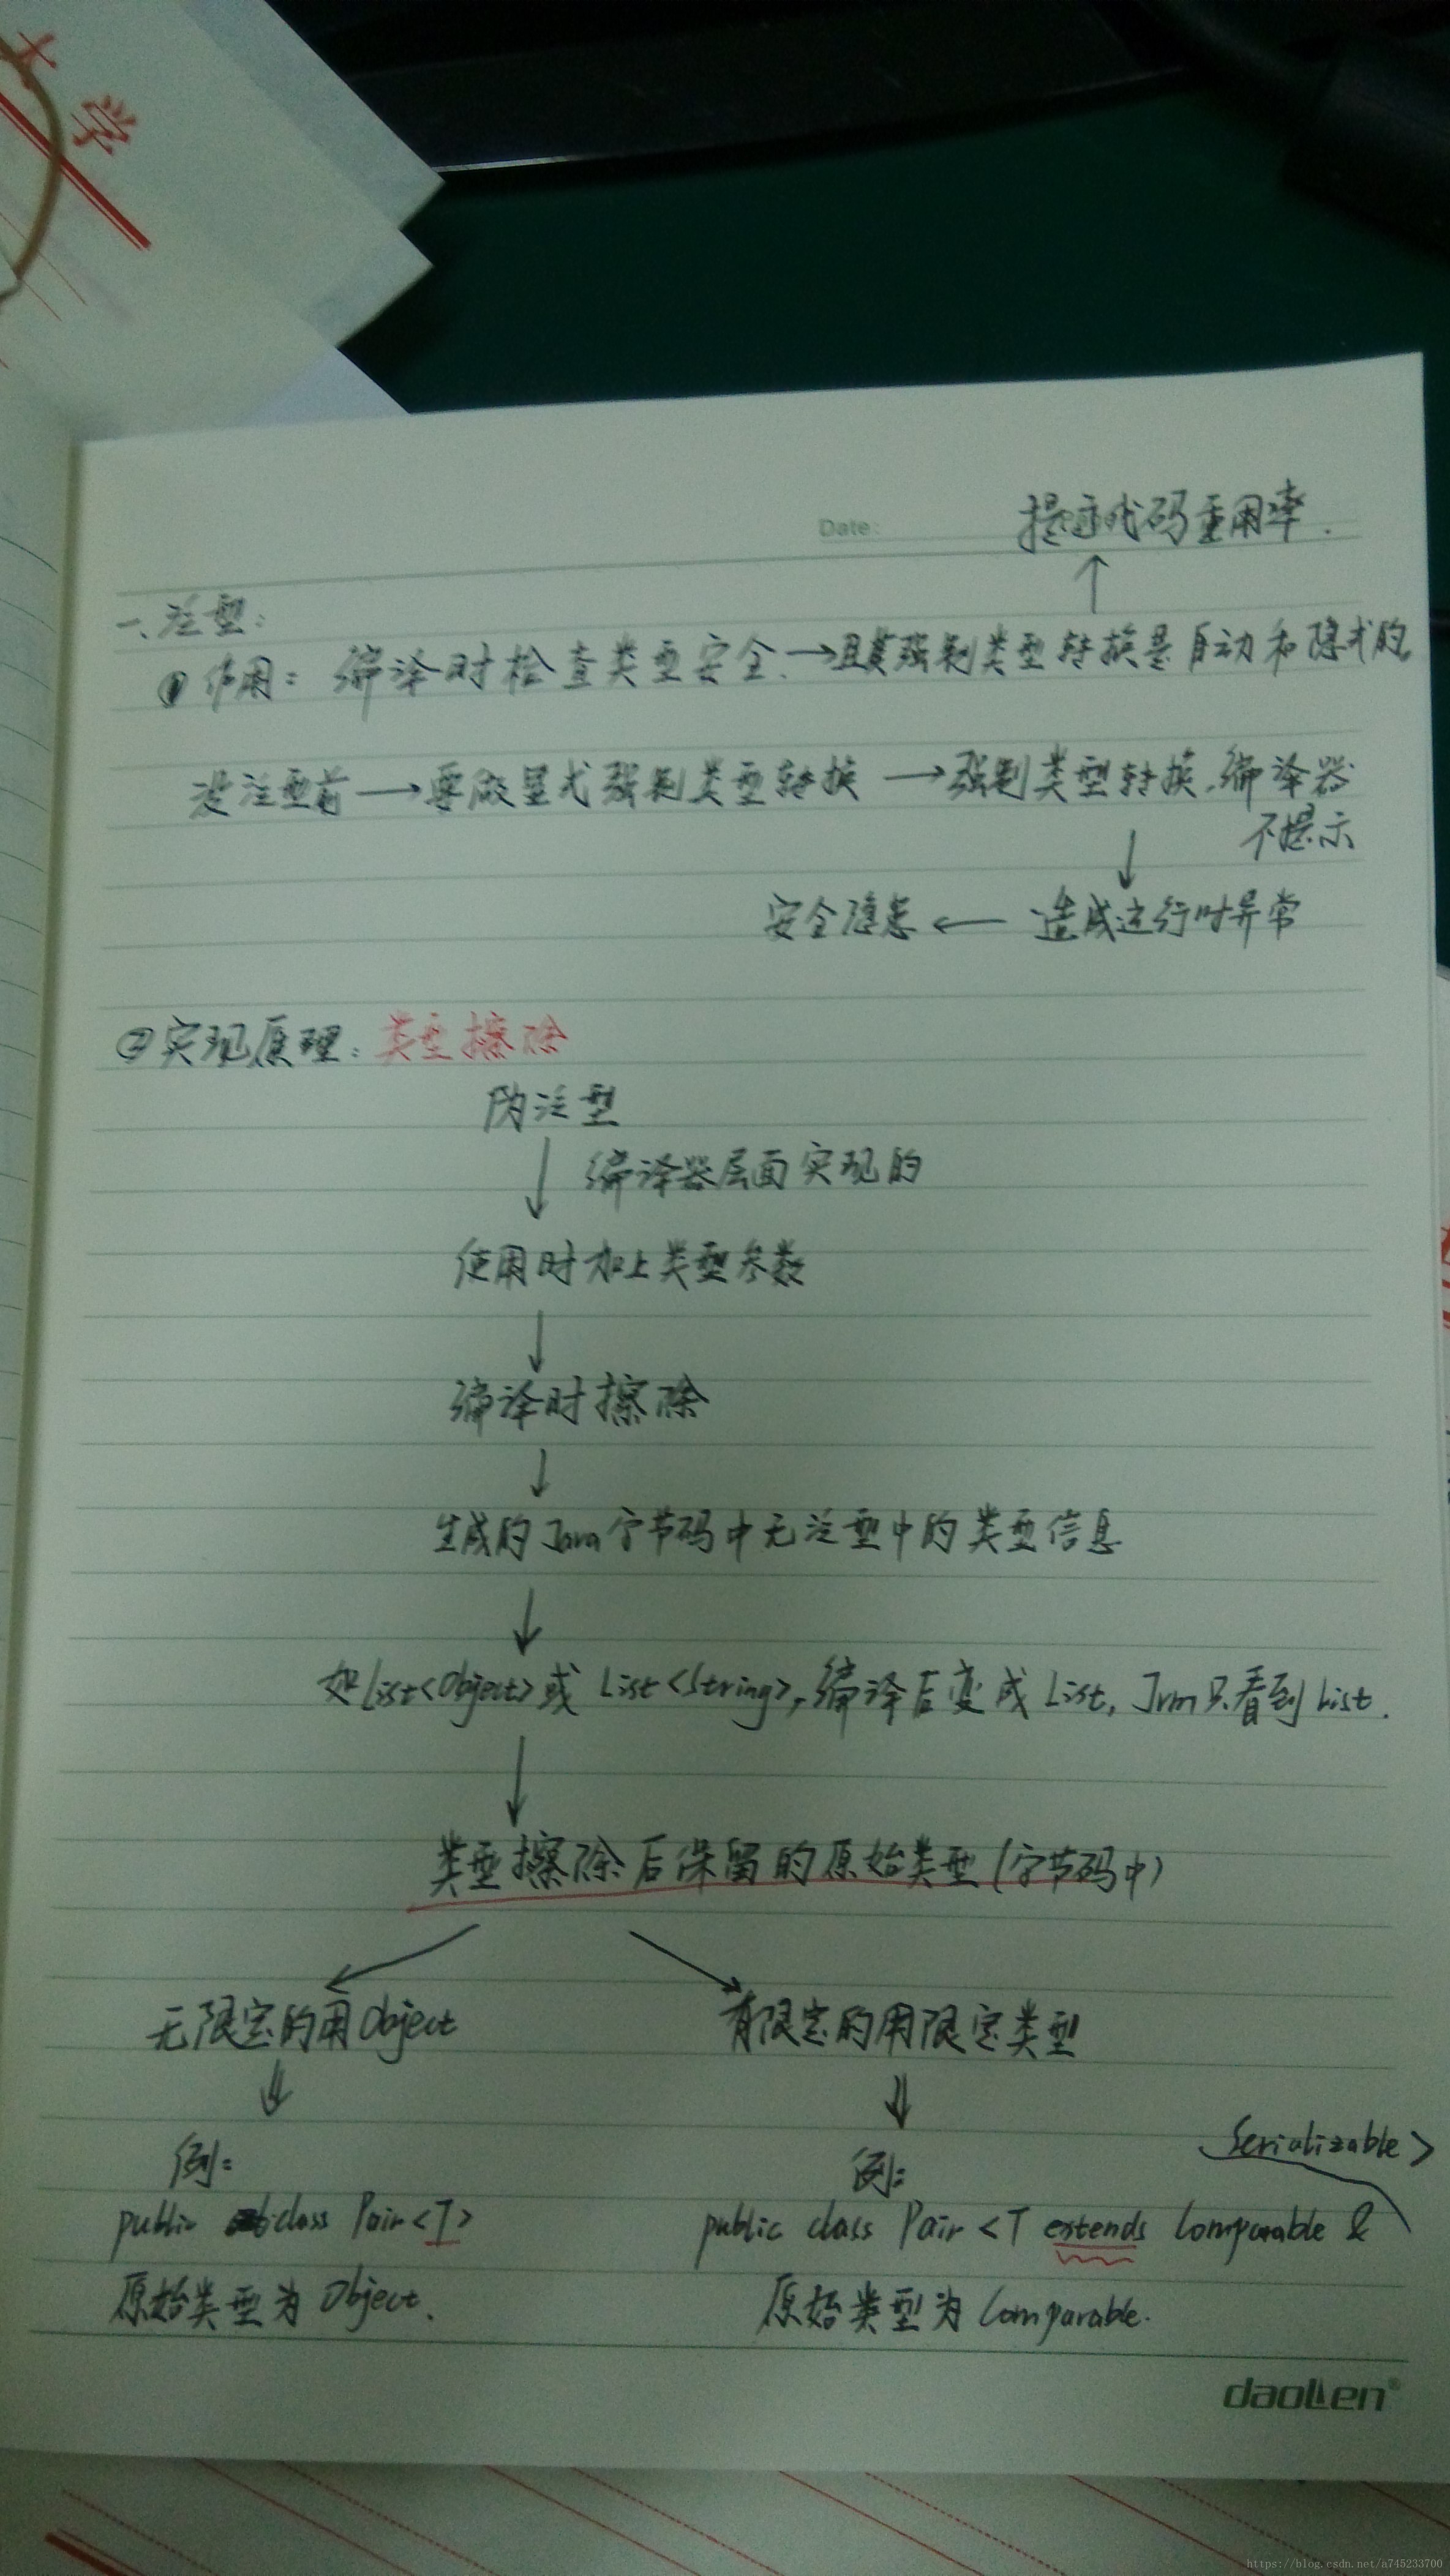 大学
Date:
提高代码重用率.
一、泛型:
①作用: 编译时检查类型安全.→且其强制类型转换是自动和隐式的
没泛型前→要做显式强制类型转换→强制类型转换,编译器
不提示
↓
安全隐患←造成运行时异常
②实现原理:类型擦除
伪泛型
↓编译器层面实现的
使用时加上类型参数
↓
编译时擦除
↓
生成的Java字节码中无泛型中的类型信息
↓
如List<Object>或List<String>,编译后变成List, Jvm只看到List.
↓
类型擦除后保留的原始类型(字节码中)
无限定的用Object 有限定的用限定类型
例: 例:
Serializable>
public class Pair<T> public class Pair<T extends Comparable &
原始类型为Object. 原始类型为Comparable.
daollen®
https://blog.csdn.net/a745233700